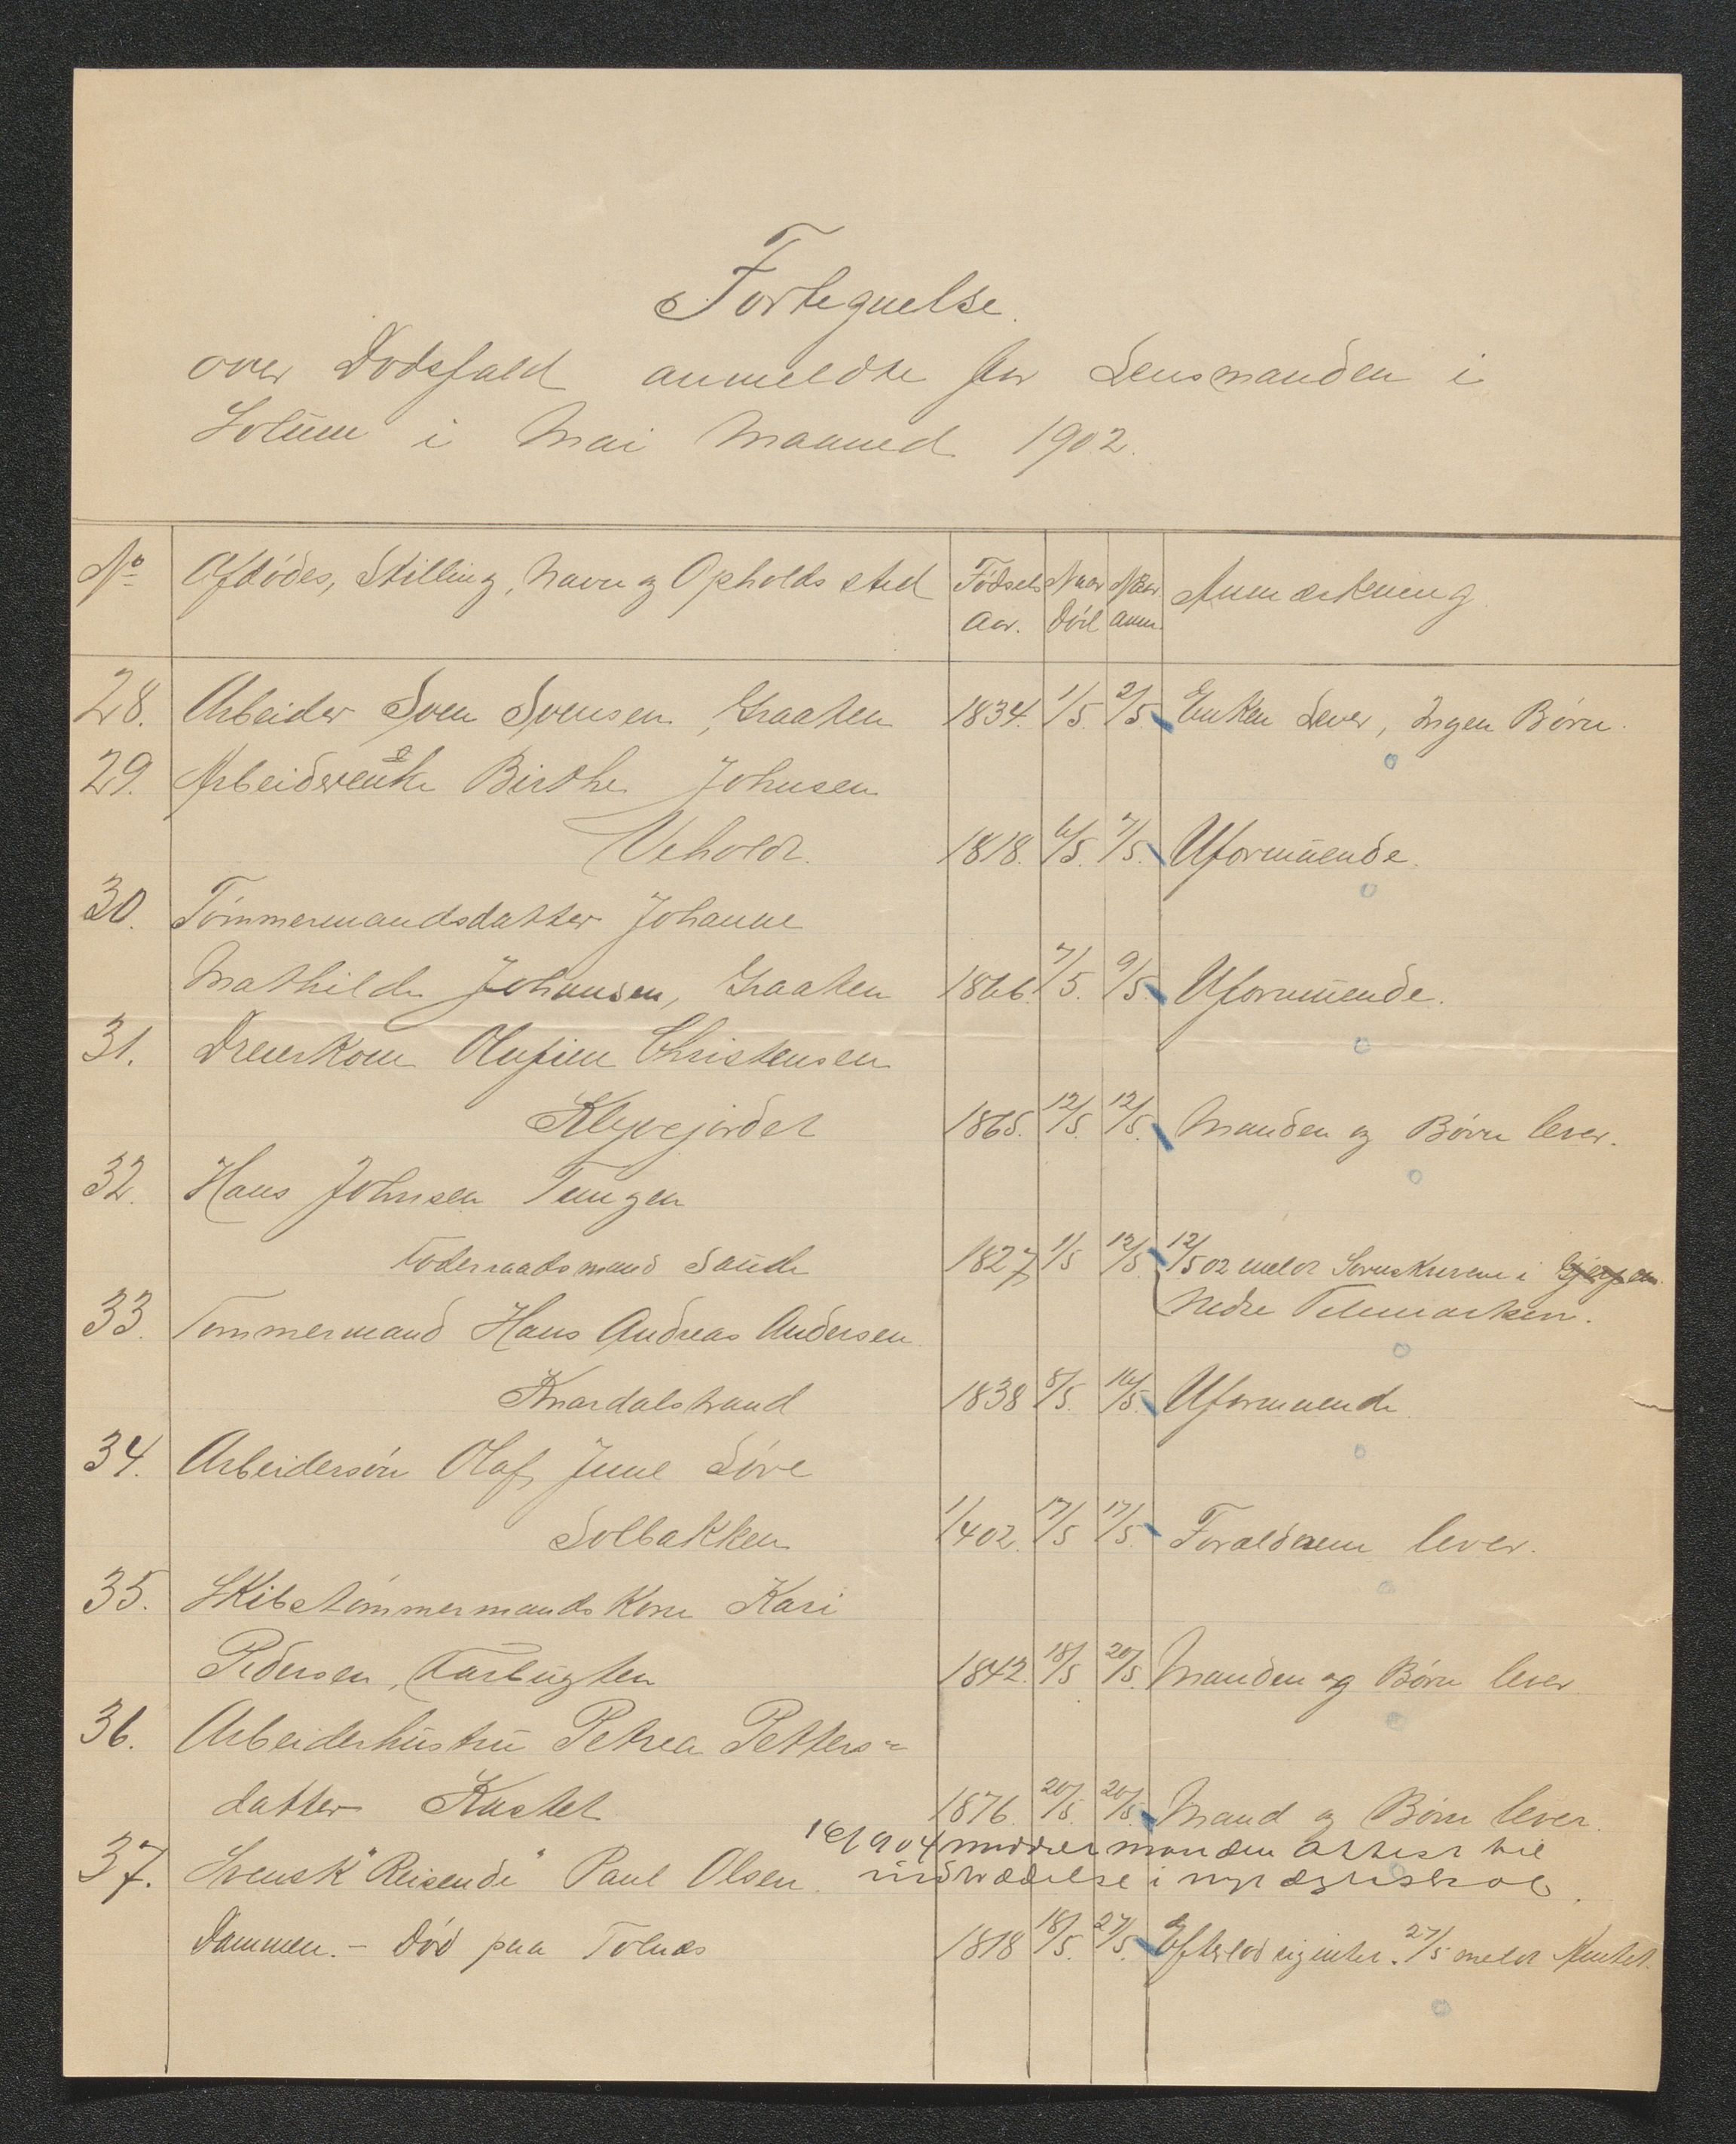 Fortegnelse.
over Dødsfald anmeldte for Lensmanden i
Solum i Mai Maaned 1902.
No Afdødes, Stilling, Navn og Opholdssted Fødsels Aar. Naar Død Naar anm. Anmærkning
28. Arbeider Sven Svensen, Graaten 1834. 1/5. 2/5. Enken Lever, Ingen Børn.
29. Arbeiderenke Birthe Johnsen
Vehold. 1818. 6/5. 7/5. Uformuende.
30. Tømmermandsdatter Johanne
Mathilde Johansen, Graaten 1866. 7/5. 9/5. Uformuende.
31. Dreierkone Olufine Christensen
Klyvejordet 1865. 12/5. 12/5. Manden og Børn lever.
32. Hans Johnsen Tungen
Foderaadsmand Saude 1827 1/5 12/5. 12/5 02 meldt Sorenskriveren i Gjerpen
Nedre Telemarken.
33. Tømmermand Hans Andreas Andersen
Knardalstrand 1838 8/5. 16/5. Uformuende
34. Arbeidersøn Olaf Juul Löve
Solbakken 1/4 02. 17/5 17/5. Forældrene lever.
35. Skibstømmermandskone Kari
Pedersen, 1842. 18/5 20/5. Manden og Børn lever.
36. Arbeiderhustru Petrea Petters=
datter Kastet 1876. 20/5. 20/5. Mand og Børn lever.
1904 meddelt manden Attest til
37. Svensk "Reisende" Paul Olsen. indtrædelse i nyt ægteskab.
Dammen. - Død paa Tolnæs 1818 18/5. 27/5. Efterlod sig intet. 27/5 meldt Amtet.